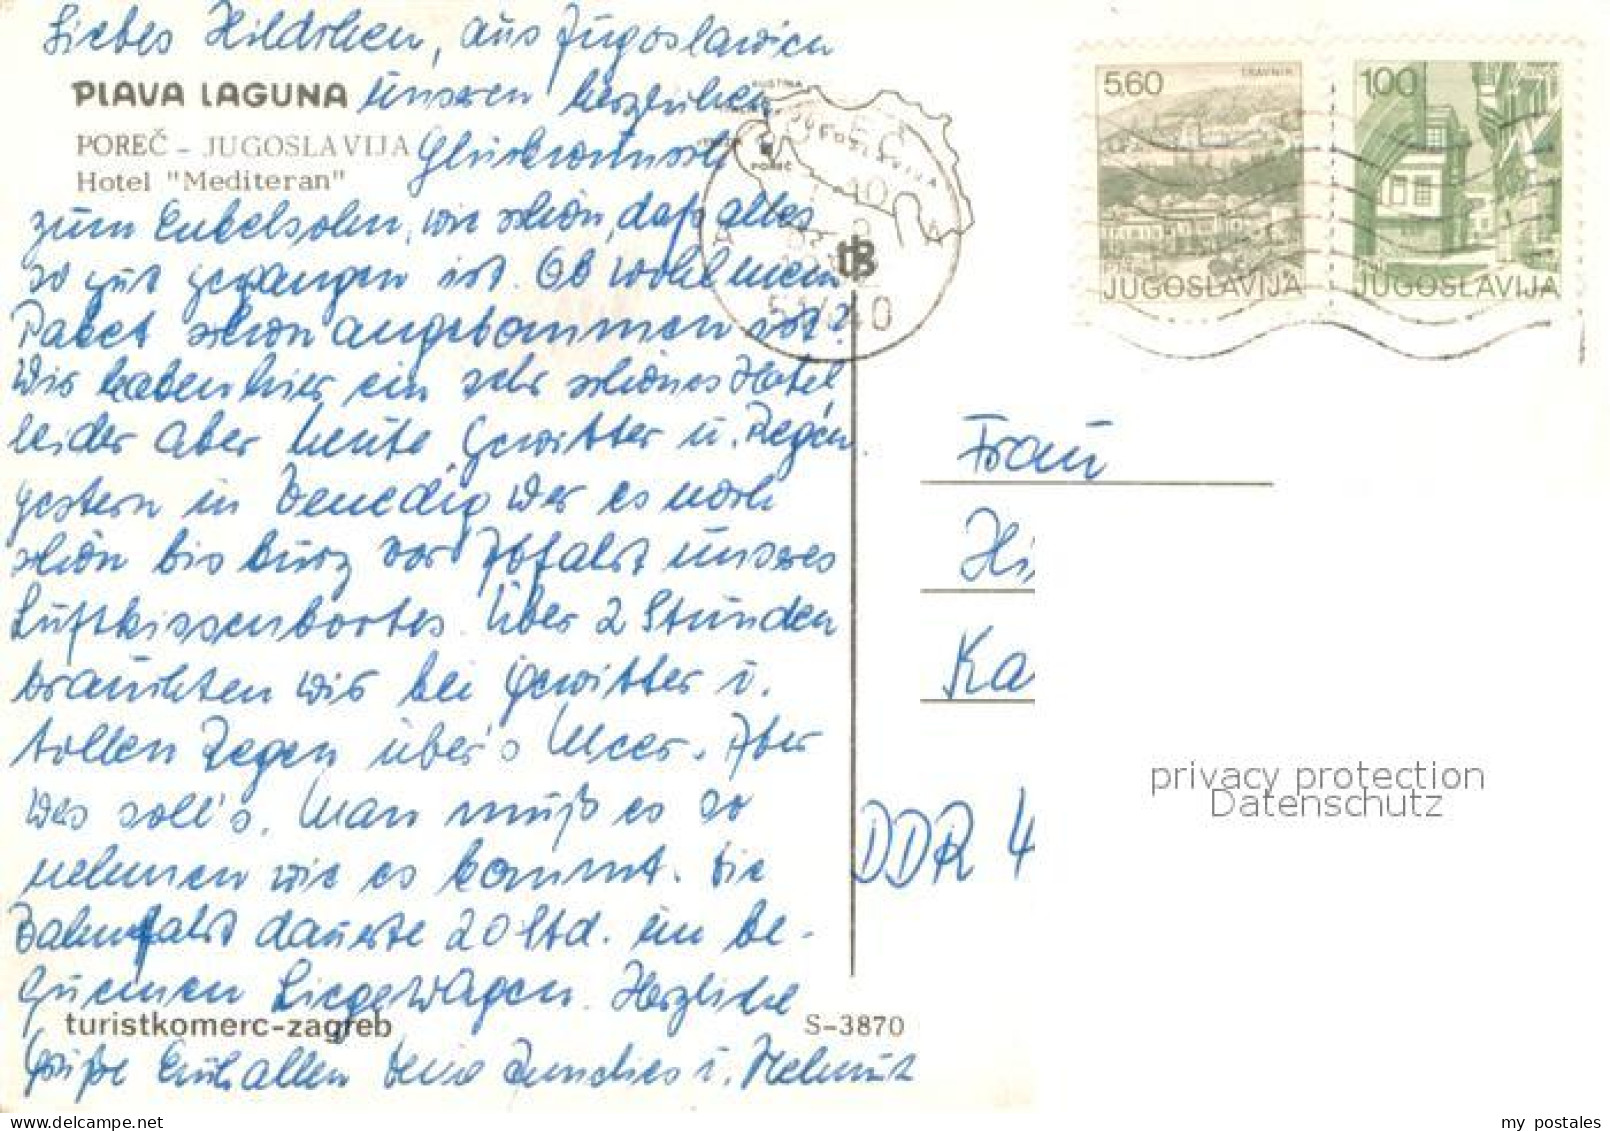 Liebes Hildchen, aus Jugoslawien
PLAVA LAGUNA
unseren herzlichen
POREČ - JUGOSLAVIJA
Glückwunsch
Hotel "Mediteran"
zum Enkelsohn, wie schön, daß alles
so gut gegangen ist. Ob wohl mein
Paket schon angekommen ist?
Wir haben hier ein sehr schönes Hotel
leider aber heute Gewitter u. Regen.
gestern in Venedig war es noch
schön bis kurz vor Abfahrt unseres
Luftkissenbootes. Über 2 Stunden
brauchten wir bei Gewitter u.
tollen Regen über's Meer. Aber
was soll's. Man muß es so
nehmen wie es kommt. Die
Bahnfahrt dauerte 20 Std. im be-
quemen Liegewagen. Herzliche
turistkomerc-zagreb
S-3870
Grüße Euch allen Deine u. Helmut
POREČ
51440
tB
5.60
TRAVNIK
JUGOSLAVIJA
1.00
JUGOSLAVIJA
Frau
Hi
Ka
DDR 4
privacy protection
Datenschutz
my postales